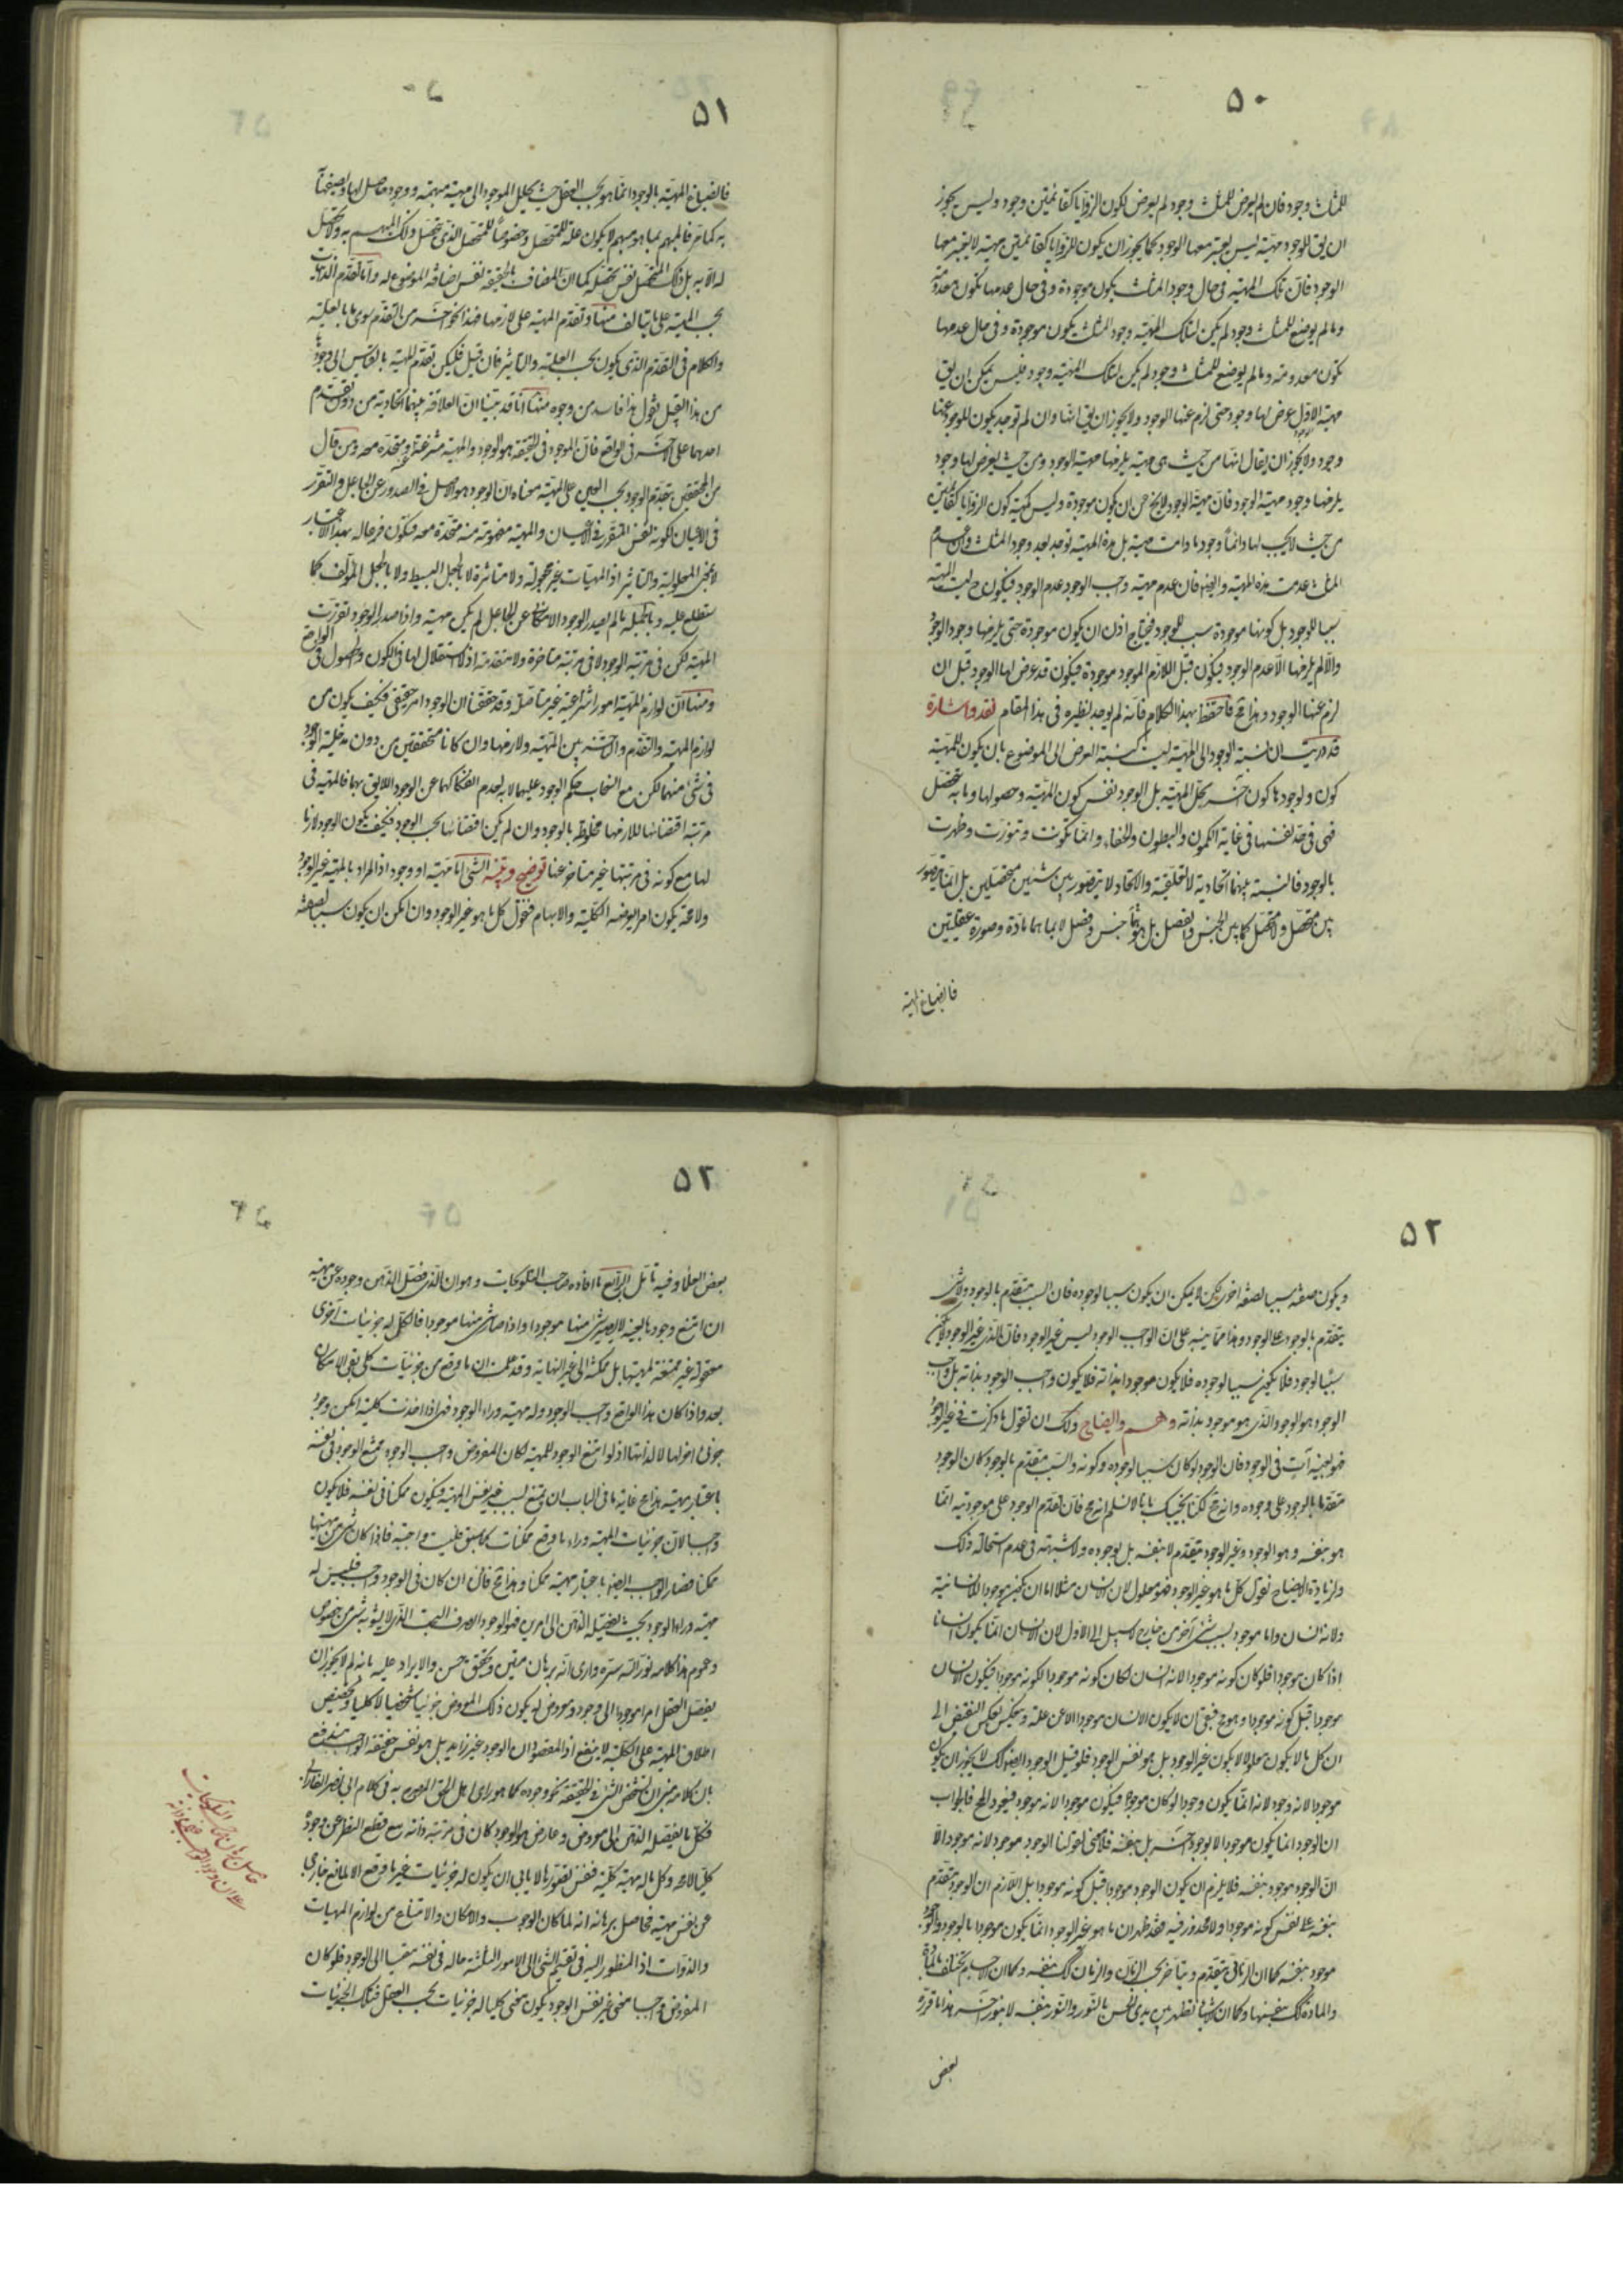 ٥٠
للمثلث وجود فان لم يعرض للمثلث وجود لم يعرض لكون الزوايا كقائمتين وجود وليس يجوز
ان يق للوجود مهية ليس يعتبر معها الوجود كما يجوز ان يكون للزوايا كقائمتين مهية لا يعتبر معها
الوجود فان تلك المهية فى حال وجود المثلث يكون موجودة وفى حال عدمها تكون معدومة
وما لم يوضع للمثلث وجود لم يكن لتلك المهية وجود المثلث يكون موجودة وفى حال عدمها
تكون معدومة وما لم يوضع للمثلث وجود لم يكن لتلك المهية وجود فليس يمكن ان يق
مهية الاول عرض لها وجود حتى لزم عنها الوجود ولا يجوز ان يق انها وان لم توجد يكون للوجود عنها
وجود ولا يجوز ان يقال انها من حيث هى مهية يلزمها مهية الوجود ومن حيث يعرض لها وجود
يلزمها وجود مهية الوجود فان مهية الوجود لا يخ عن ان يكون موجودة وليس كمهية كون الزوايا كقائمتين
من حيث لا يجب لها دائما وجود ما دامت مهية بل هذه المهية توجد بعد وجود المثلث وان عدم
المثلث عدمت هذه المهية وايضه فان عدم مهية واجب الوجود عدم الوجود فيكون ح ليست المهية
سببا للوجود بل كونها موجودة سبب للوجود فيحتاج اذن ان يكون موجودة حتى يلزمها وجود الوجود
والا لم يلزمها الا عدم الوجود فيكون قبل اللازم الموجود موجودة فيكون قد عرض لها الوجود قبل ان
لزم عنها الوجود وهذا مح فاحتفظ بهذا الكلام فانه لم يوجد نظيره فى هذا المقام نقد واشارة
قد دريت ان نسبة الوجود الى المهية ليست كنسبة العرض الى الموضوع بان يكون للمهية
كون ولوجودها كون اخر يحل المهية بل الوجود نفس كون المهية وحصولها وما به تتحصل
فهى فى حد نفسها فى غاية الكمون والبطون والخفاء وانما تكونت وتنورت وظهرت
بالوجود فالنسبة بينهما اتحادية لا تعلقية والاتحاد لا يتصور بين شيئين متحصلين بل انما يتصور
بين متحصل ولا متحصل كما بين الجنس والفصل بل هو بما جنس وفصل لا بما هما مادة وصورة عقليتين
فانصباغ المهية
٥١
فانصباغ المهية بالوجود انما هو بحسب العقل حيث يحلل الموجود الى مهية مبهمة ووجود حاصل لها ويصفها
به كما مر فالمبهم بما هو مبهم لا يكون علة للمتحصل وخصوصا للمتحصل الذى يتحصل ذلك المبهم به ولا تحصل
له الا به بل ذلك المتحصل نفس تحصله كما ان المضاف بالحقيقة نفس اضافة الموضوع له واما تقدم الذاتيات
بحسب المهية على ما يتالف منها وتقدم المهية على لازمها فهذا نحو اخر من التقدم سوى ما بالعلية
والكلام فى التقدم الذى يكون بحسب العلية والتاثير فان قيل فليكن تقدم المهية بالقياس الى وجودها
من هذا القبيل نقول هذا فاسد من وجوه منها انا قد بينا ان العلاقة بينهما اتحادية من دون تقدم
احدهما على الاخر فى الواقع فان الموجود فى الحقيقة هو الوجود والمهية منتزعة عنه ومتحدة معه ومن قال
من المحققين بتقدم الوجود بحسب العين على المهية معناه ان الوجود هو الاصل فى الصدور عن الجاعل والتقرر
فى الاعيان لكونه نفس التقرر فى الاعيان والمهية مفهومة منه متحدة معه فيكون فرعا له بهذا الاعتبار
لا بمعنى المعلولية والتاثير اذ المهيات غير مجعولة ولا متاثرة لا بالجعل البسيط ولا بالجعل المؤلف كما
ستطلع عليه وبالجملة ما لم يصدر الوجود الامكانى عن الجاعل لم يكن مهية واذا صدر الوجود تقررت
المهية لكن فى مرتبة الوجود لا فى مرتبة متاخرة ولا متقدمة اذ لا استقلال لها فى الكون والحصول فى الواقع
ومنها ان لوازم المهية امور انتزاعية غير متاصلة وقد حققنا ان الوجود امر حقيقى فكيف يكون من
لوازم المهية والتقدم والتاخر بين المهية ولازمها وان كانا متحققين من دون مدخلية الوجود
فى شئ منهما لكن مع انسحاب حكم الوجود عليهما لا به لعدم انفكاكهما عن الوجود اللايق بهما فالمهية فى
مرتبة اقتضائها للازمها مخلوطة بالوجود وان لم يكن اقتضائها بحسب الوجود فكيف يكون الوجود لازما
لها مع كونه فى مرتبتها غير متاخر عنها توضيح وتنبيه الشئ اما مهية او وجود اذ المراد بالمهية غير الوجود
ولا محة يكون امر يعرضه الكلية والابهام فنقول كل ما هو غير الوجود وان امكن ان يكون سببا لصفة
٥٢
ويكون صفته سببا لصفة اخرى لكن لا يمكن ان يكون سببا لوجوده فان السبب متقدم بالوجود ولا شئ
يتقدم بالوجود على الوجود وهذا مما ينبه على ان الواجب الوجود ليس غير الوجود فان الذى غير الوجود لا يكون
سببا لوجوده فلا يكون سببا لوجوده فلا يكون موجودا بذاته فلا يكون واجب الوجود بذاته بل واجب
الوجود هو الوجود الذى هو موجود بذاته وهم وايضاح ولك ان تقول ما ذكرت فى غير الوجود
فهو بعينه آت فى الوجود فان الوجود لو كان سببا لوجوده وكونه والسبب متقدم بالوجود كان الوجود
متقدما بالوجود على وجوده وانه مح لكنا نجيبك بانا لا نسلم انه مح فان تقدم الوجود على موجوديته انما
هو بنفسه وهو الوجود وغير الوجود يتقدم لا بنفسه بل بوجوده ولا شبهة فى عدم استحالة ذلك
ولزيادة الايضاح نقول كل ما هو غير الوجود فهو معلول لان الانسان مثلا اما ان يكون موجودا للانسانية
ولانه انسان واما موجود بسبب شئ آخر من خارج لا سبيل الى الاول لان الانسان انما يكون انسانا
اذا كان موجودا فلو كان كونه موجودا لانه انسان لكان كونه موجودا لكونه موجودا فيكون الانسان
موجودا قبل كونه موجودا وهو مح فبقى ان لا يكون الانسان موجودا الا عن علة وينعكس بعكس النقيض الى
ان كل ما لا يكون معلولا لا يكون غير الوجود بل هو نفس الوجود فلو قيل الوجود ايضه كك لا يجوز ان يكون
موجودا لانه وجود لانه انما يكون وجودا لو كان موجودا فيكون موجودا لانه موجود فيعود المح فالجواب
ان الوجود انما يكون موجودا لا بوجود اخر بل بنفسه فلا معنى لقولنا الوجود موجود لانه موجود الا
ان الوجود موجود بنفسه فلا يلزم ان يكون الوجود موجودا قبل كونه موجودا بل اللازم ان الوجود متقدم
بنفسه على نفس كونه موجودا ولا محذور فيه فقد ظهر ان ما هو غير الوجود انما يكون موجودا بالوجود والوجود
موجود بنفسه كما ان الزمانى يتقدم ويتاخر بحسب الزمان والزمان كك بنفسه وكما ان الاجسام يختلف بالمادة
والمادة كك بنفسها وكما ان الاشياء تظهر بين يدى الحس بالنور والنور بنفسه لا بنور اخر هذا ما قرره
بعض
٥٢
بعض العلماء وفيه تامل الرابع ما افاده صاحب التلويحات وهو ان الذى فصل الذهن وجوده عن مهيته
ان امتنع وجودها بعينه لا يصير شئ منها موجودا واذا صار شئ منها موجودا فالكلى له جزئيات اخرى
معقولة غير ممتنعة لمهيتها بل ممكنة الى غير النهاية وقد علمت ان ما وقع من جزئيات كلى بقى الامكان
بعد واذا كان هذا الواقع واجب الوجود وله مهية وراء الوجود فهى اذا اخذت كلية امكن وجود
جزئى اخر لها لذاتها اذ لو امتنع الوجود للمهية لكان المفروض واجب الوجود ممتنع الوجود فى نفسه
باعتبار مهيته هذا مح غاية ما فى الباب ان يمتنع بسبب غير نفس المهية فيكون ممكنا فى نفسه فلا يكون
واجبا لان جزئيات المهية وراء ما وقع ممكنات كما سبق فليست واجبة فاذا كان شئ من مهيتها
ممكنا فصار الواجب ايضه باعتبار مهيته ممكنا وهذا مح فاذن ان كان فى الوجود واجب فليس له
مهية وراء الوجود بحيث يفصله الذهن الى امرين فهو الوجود الصرف البحت الذى لا يشوبه شئ من خصوص
وعموم هذا كلامه نور الله سره وارى انه برهان متين وتحقيق حسن والايراد عليه بانه لم لا يجوز ان
يفصل العقل امرا موجودا الى وجود ومعروض له يكون ذلك المعروض جزئيا شخصيا لا كليا وتخصيص
اطلاق المهية على الكلية لا ينفع اذ المقصود ان الوجود غير زايد بل هو نفس حقيقة الواجب مندفع
بان كلامه مبنى ان تشخص الشئ فى الحقيقة نحو وجوده كما هو راى اهل الحق المصرح به فى كلام ابى نصر الفارابى
فكل ما يفصله الذهن الى معروض وعارض هو الوجود كان فى مرتبة ذاته مع قطع النظر عن وجوده
كليا لا محة وكل ما له مهية كلية فنفس تصورها لا يابى ان يكون له جزئيات غير ما وقع الا لمانع خارج
عن نفس مهيته فحاصل برهانه انه لما كان الوجوب والامكان والامتناع من لوازم المهيات
والذوات اذ المنظور اليه فى تقسيم الشئ الى الامور الثلثة حاله فى نفسه مقيسا الى الوجود فلو كان
المفروض واجبا معنى غير نفس الوجود يكون معنى كليا له جزئيات بحسب العقل فتلك الجزئيات